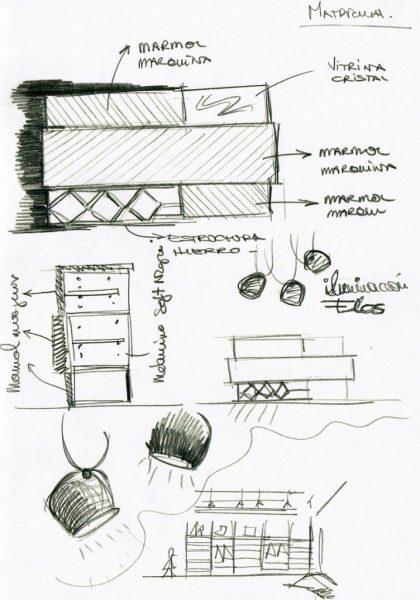 MATRICIAL.
MARMOL
MARQUINA
VITRINA
CRISTAL
MARMOL
MARQUINA
MARMOL
MARQUI
ESTRUCTURA
HIERRO
iluminación
Marmol marquin
Melamina Soft Negro